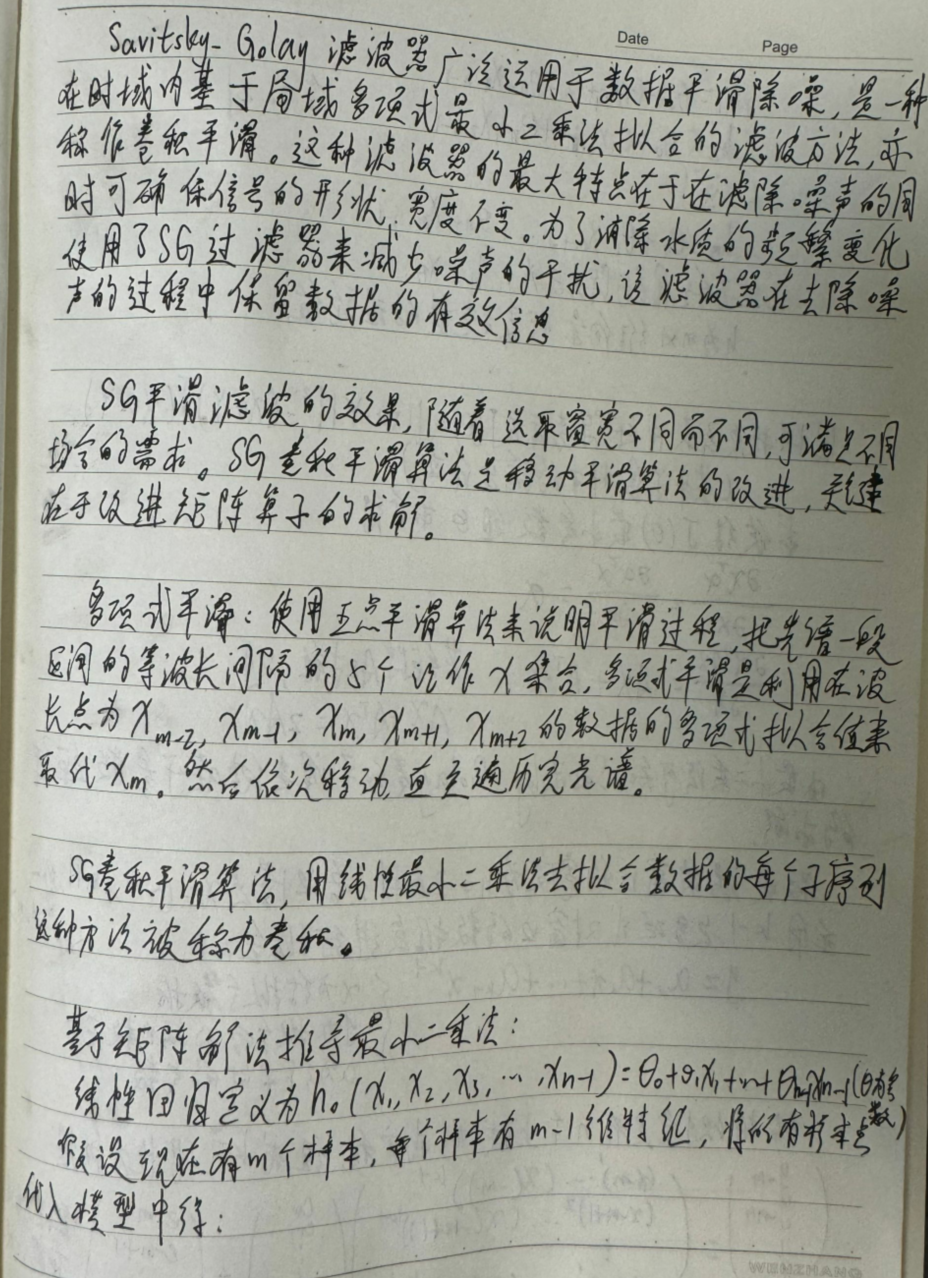 Date Page
Savitsky-Golay 滤波器广泛运用于数据平滑除噪,是一种
在时域内基于局域多项式最小二乘法拟合的滤波方法,亦
称作卷积平滑。这种滤波器的最大特点在于在滤除噪声的同
时可确保信号的形状、宽度不变。为了消除水质的频繁变化
使用了SG过滤器来减少噪声的干扰,该滤波器在去除噪
声的过程中保留数据的有效信息
SG平滑滤波的效果,随着选取窗宽不同而不同,可满足不同
场合的需求。SG卷积平滑算法是移动平滑算法的改进,关键
在于改进矩阵算子的求解。
多项式平滑:使用五点平滑算法来说明平滑过程,把光谱一段
区间的等波长间隔的5个记作X集合,多项式平滑是利用在波
长点为 X_{m-2}, X_{m-1}, X_m, X_{m+1}, X_{m+2} 的数据的多项式拟合值来
取代X_m。然后依次移动,直至遍历完光谱。
SG卷积平滑算法,用线性最小二乘法去拟合数据的每个子序列
这种方法被称为卷积。
基于矩阵解法推导最小二乘法:
线性回归定义为 h_θ(x_1, x_2, x_3, …, x_{n-1}) = θ_0+θ_1x_1+…+θ_{n-1}x_{n-1} (θ为参数)
假设现在有m个样本,每个样本有m-1维特征,将所有样本点
代入模型中得: